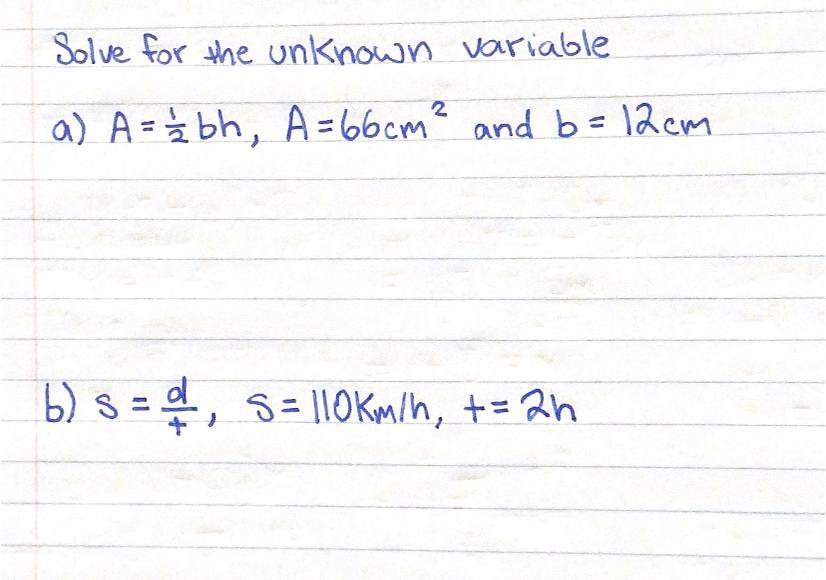 Solve for the unknown variable
a) A = ½ bh, A = 66cm² and b = 12cm
b) s = d/t, s = 110Km/h, t = 2h